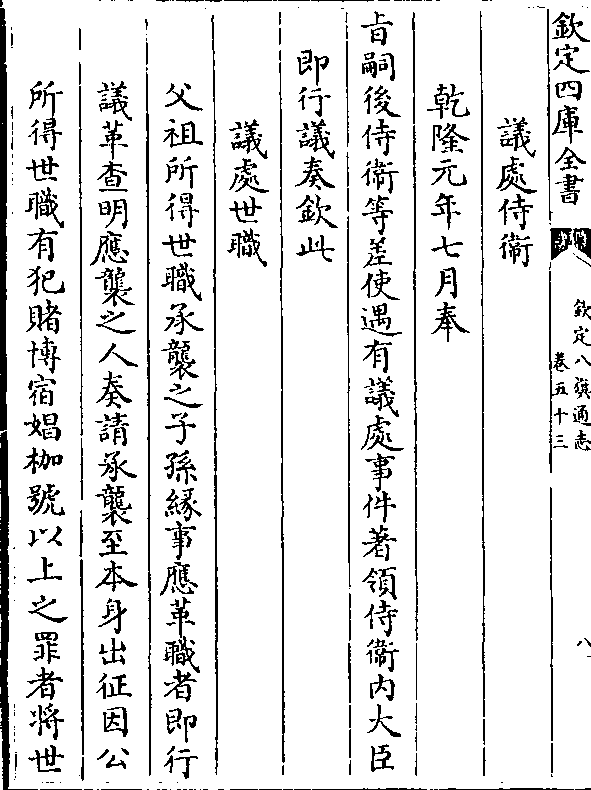 欽定四庫全書
欽定八旗通志
卷五十三
八
議處侍衛
乾隆元年七月奉
旨嗣後侍衛等差使遇有議處事件著領侍衛內大臣
即行議奏欽此
議處世職
父祖所得世職承襲之子孫緣事應革職者即行
議革查明應襲之人奏請承襲至本身出征因公
所得世職有犯賭博宿娼枷號以上之罪者將世